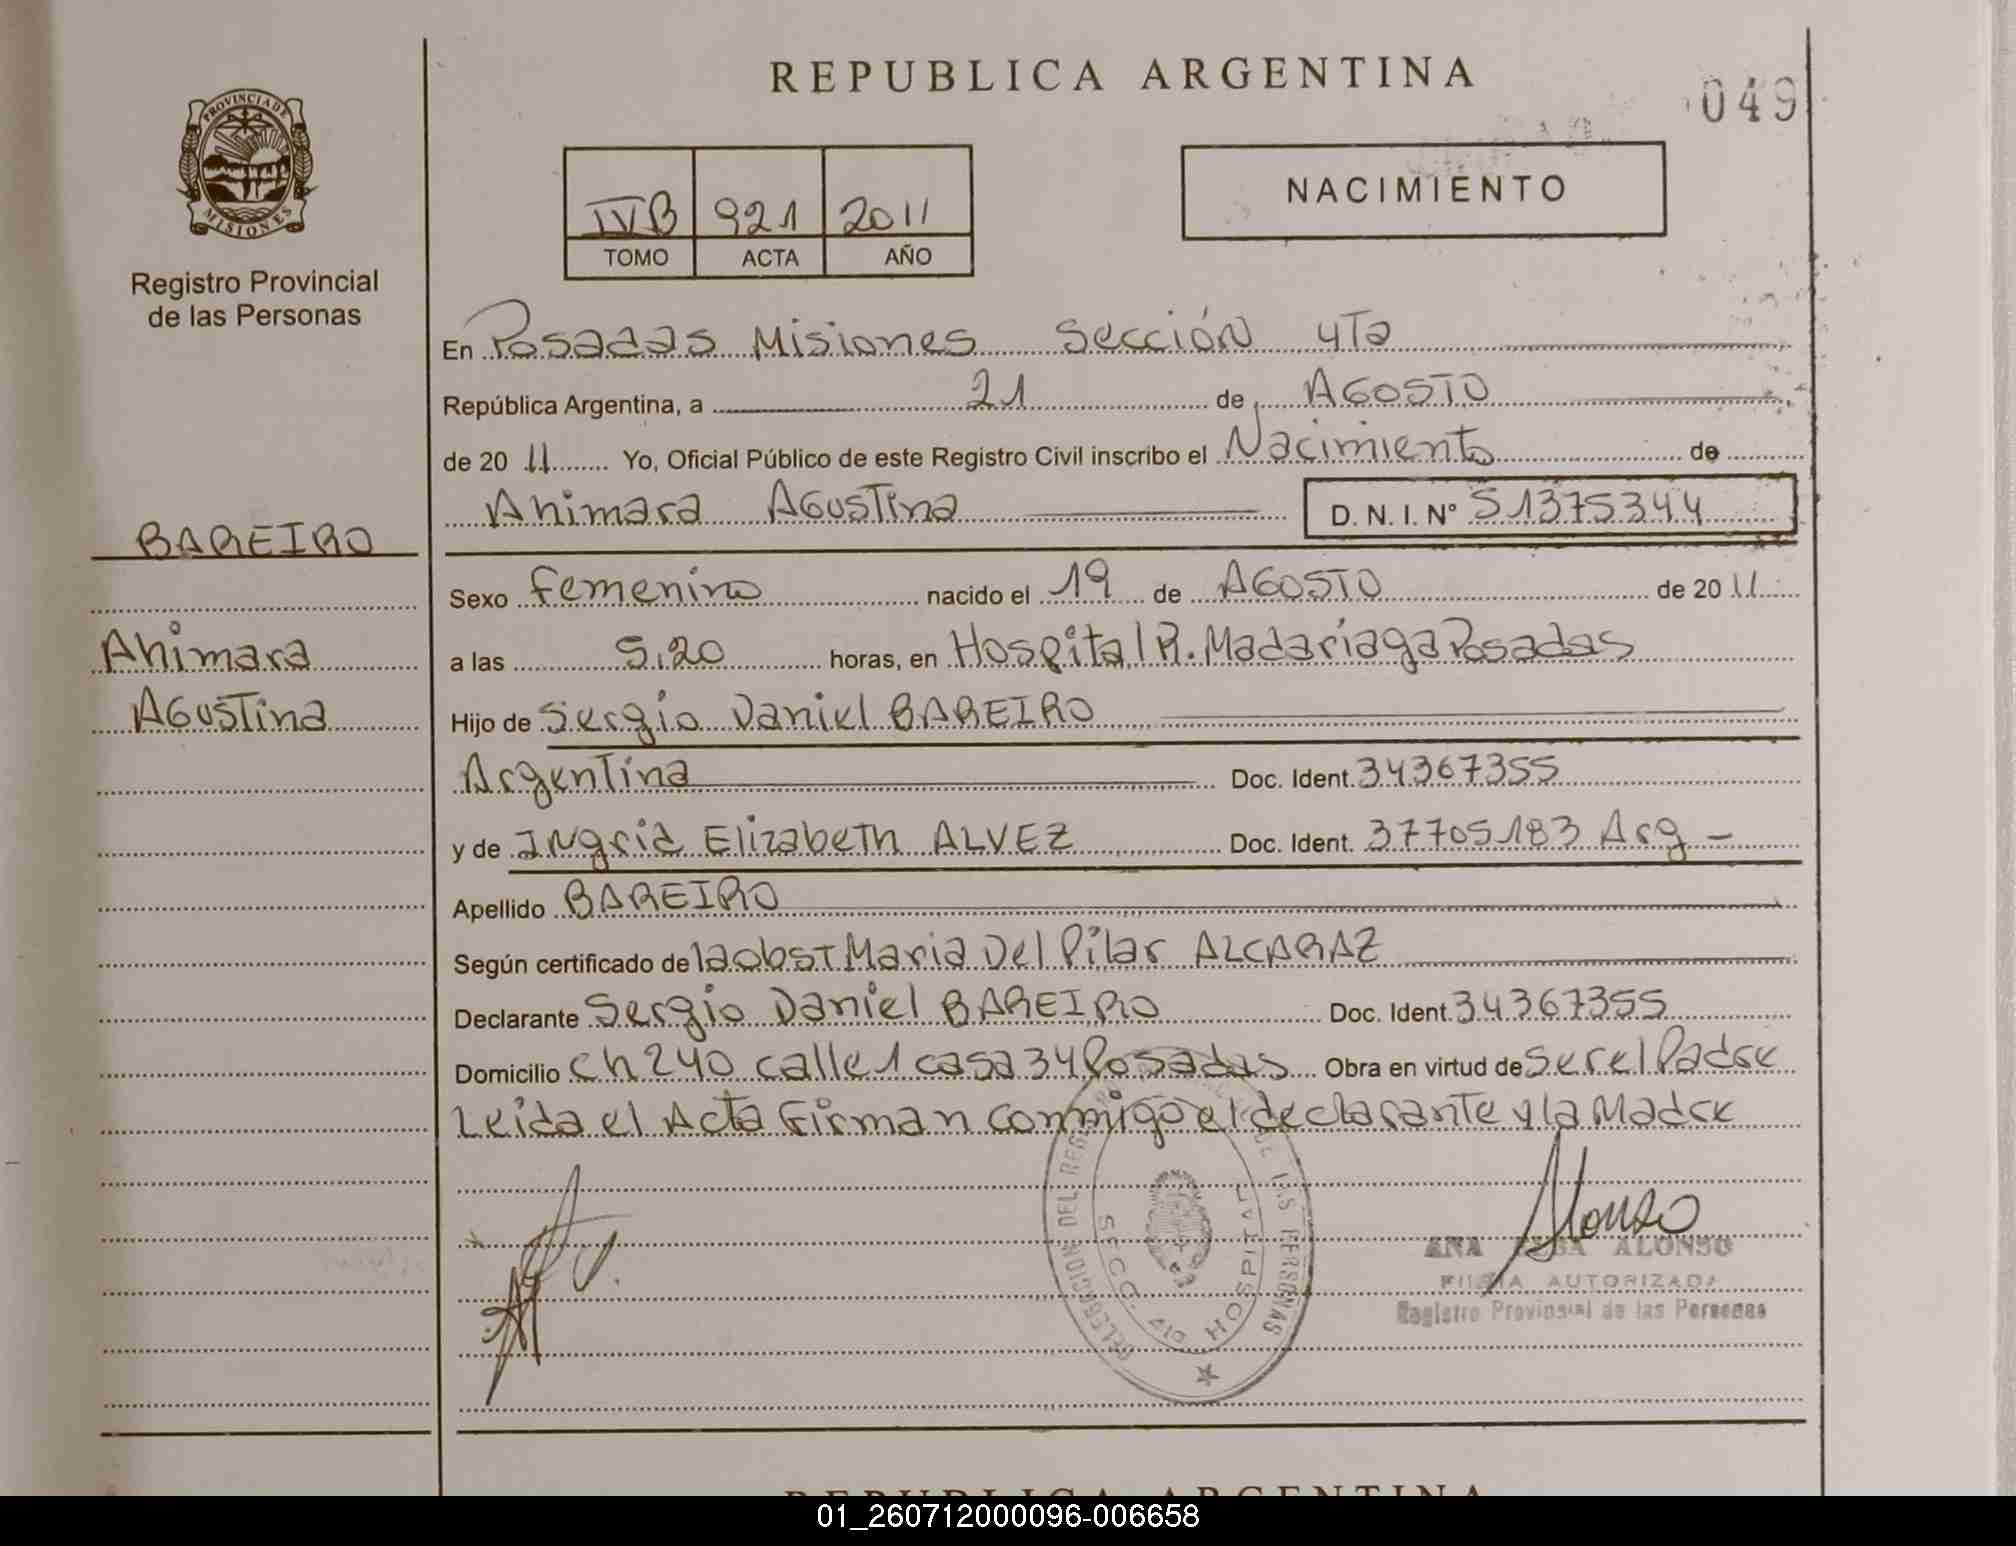 REPUBLICA ARGENTINA
049
PROVINCIA DE
MISIONES
Registro Provincial
de las Personas
IVB 921 2011
TOMO ACTA AÑO
NACIMIENTO
En Posadas Misiones Sección 4Ta
República Argentina, a 21 de AGOSTO
de 2011 Yo, Oficial Público de este Registro Civil inscribo el Nacimiento de
Ahimara Agustina D. N. I. N° 51375344
BAREIRO
Ahimara
Agustina
Sexo femenino nacido el 19 de AGOSTO de 2011
a las 5,20 horas, en Hospital R. Madariaga Posadas
Hijo de Sergio Daniel BAREIRO
Argentina Doc. Ident. 34367355
y de Ingrid Elizabeth ALVEZ Doc. Ident. 37705183 Arg -
Apellido BAREIRO
Según certificado de la obst Maria Del Pilar ALCARAZ
Declarante Sergio Daniel BAREIRO Doc. Ident. 34367355
Domicilio ch 240 calle 1 casa 34 Posadas Obra en virtud de ser el Padre
Leida el Acta Firman conmigo el declarante y la Madre
DELEGACION DEL DE LAS PERSONAS
SECC. 4ta HOSPITAL
Alonso
ANA ALONSO
FIRMA AUTORIZADA
Registro Provincial de las Personas
REPUBLICA ARGENTINA
01_260712000096-006658